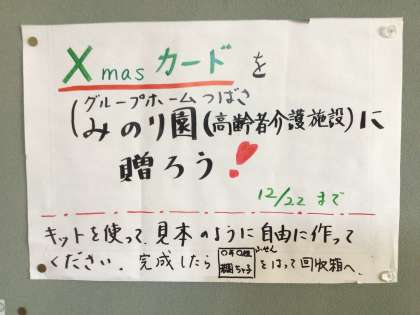 Xmas カードを
グループホームつばさ
(みのり園(高齢者介護施設)に
贈ろう!
12/22 まで
キットを使って、見本のように自由に作って
ください。完成したら
ふせん
をはって回収箱へ。